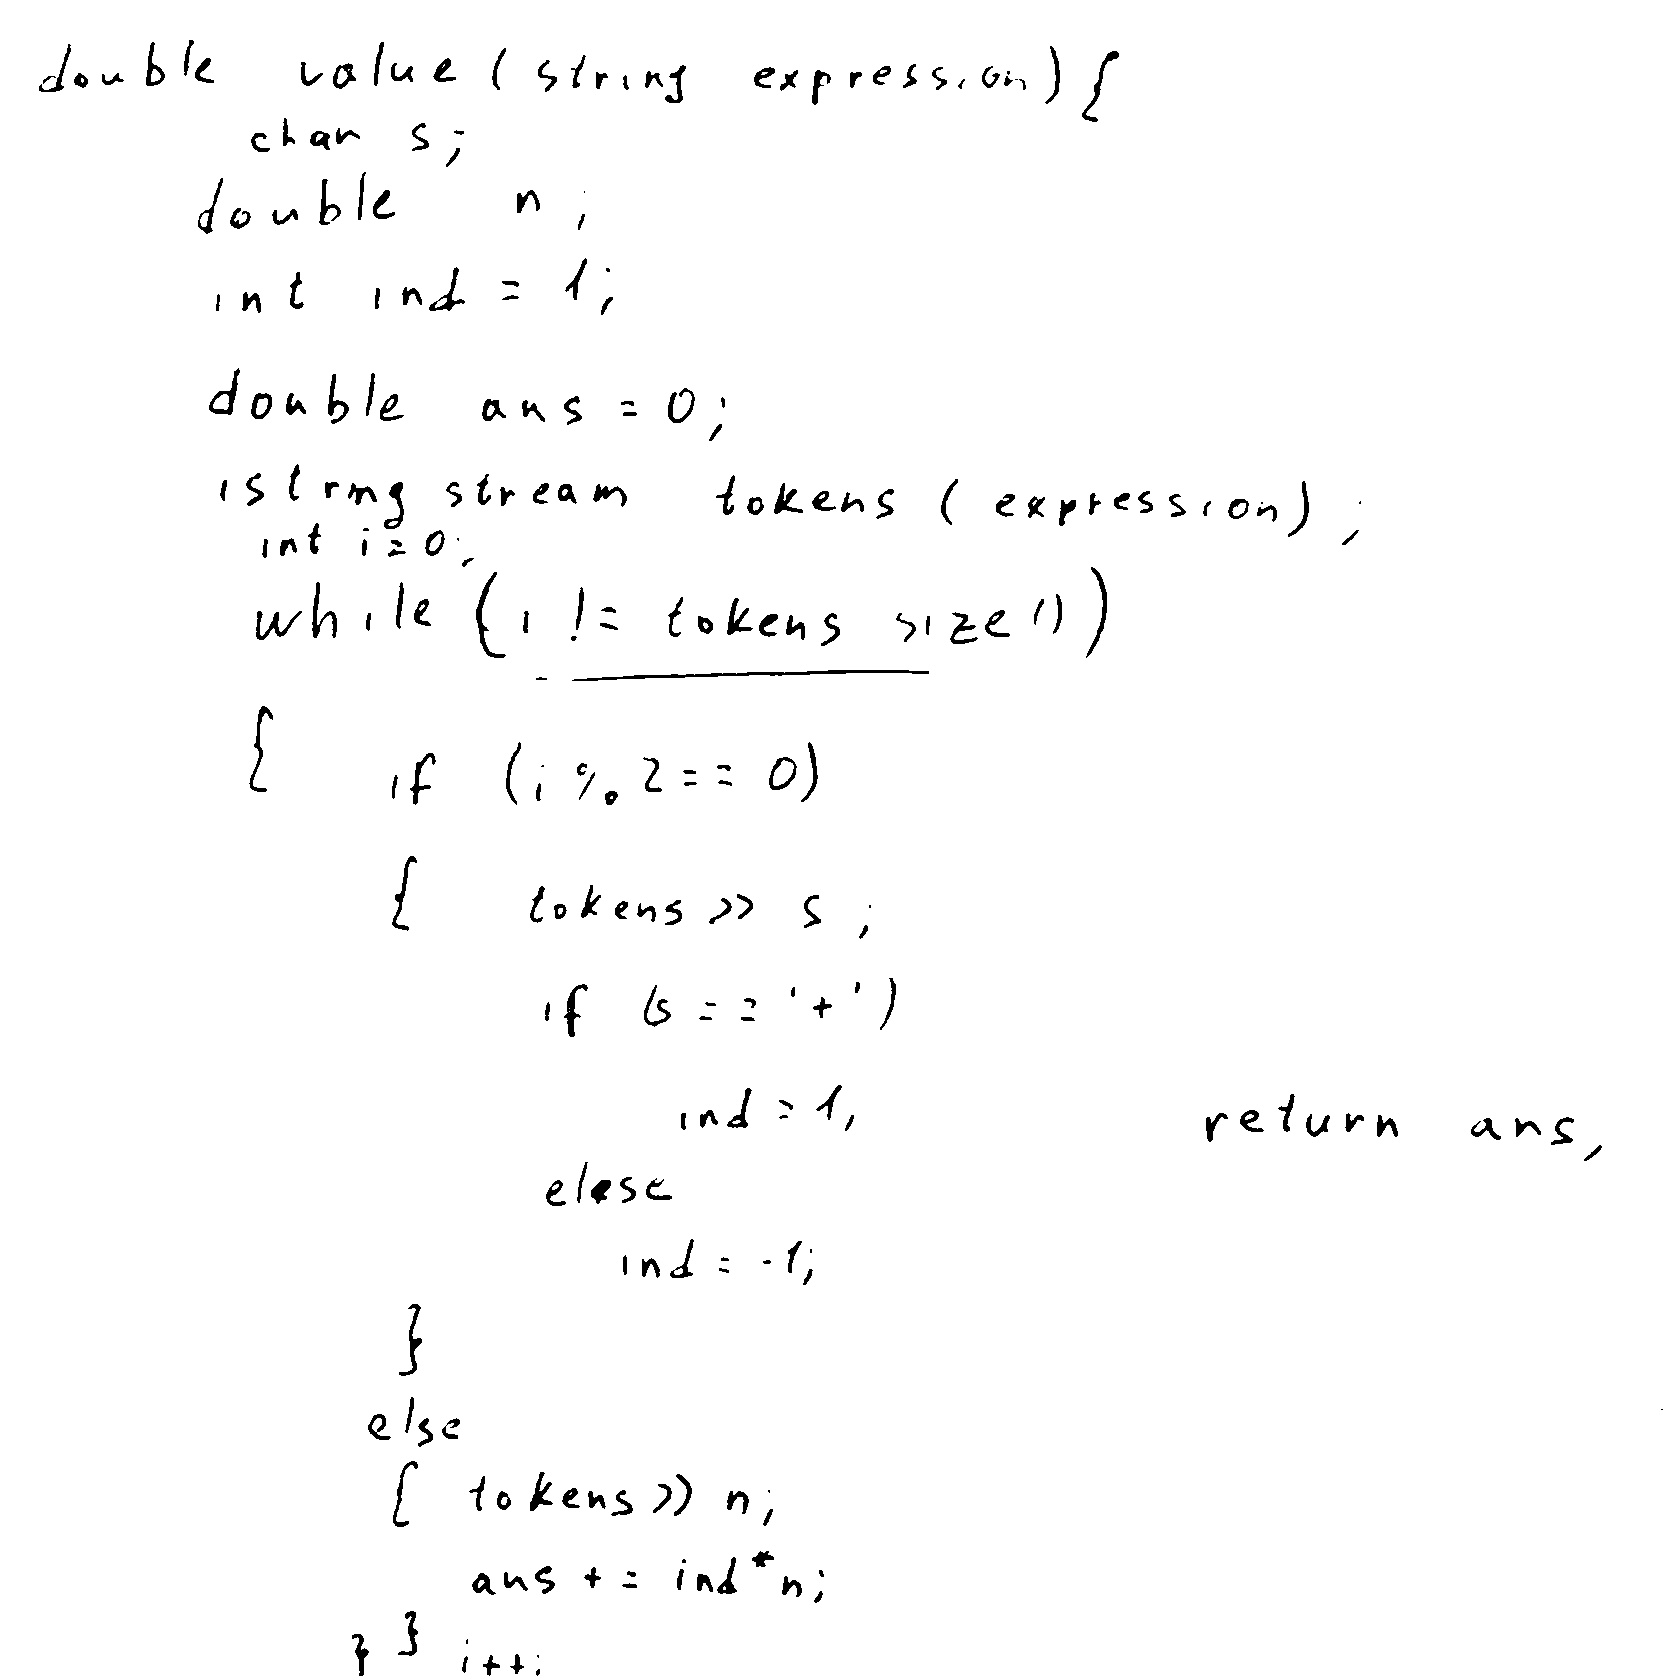 double value (string expression) {
char s;
double n;
int ind = 1;
double ans = 0;
istringstream tokens (expression);
int i=0;
while (i != tokens size())
{ if (i % 2 == 0)
{ tokens >> s;
if (s == '+')
ind = 1;
else
ind = -1;
}
else
{ tokens >> n;
ans += ind*n;
} } i++;
return ans;